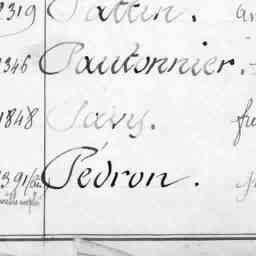 1319 Pattin.
1346 Pautonnier.
1848 Pavy.
1391/bis Pédron.